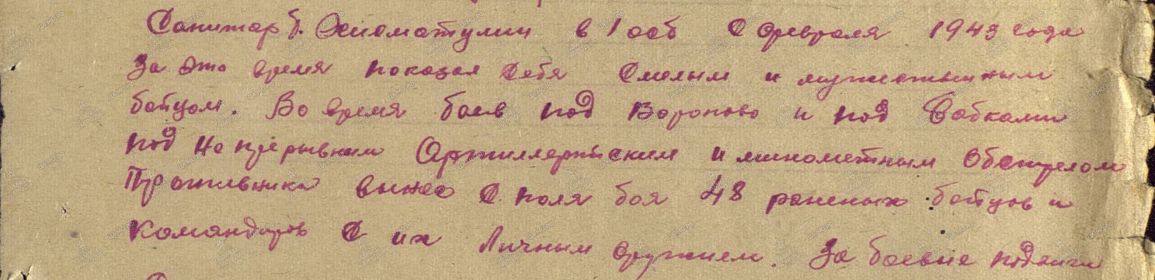 Санитар б. Хисматулин в 1 осб с февраля 1943 года
За это время показал себя смелым и мужественным
бойцом. Во время боев под Вороново и под Бабками
под непрерывным Артиллерийским и минометным обстрелом
Противника вынес с поля боя 48 раненых бойцов и
командиров с их личным оружием. За боевые подвиги